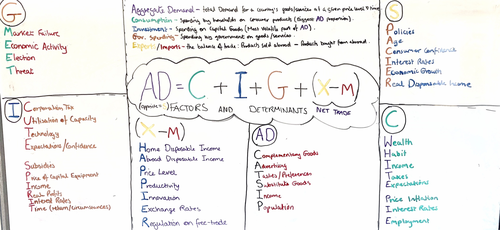 G
Market Failure
Economic Activity
Election
Threat
Aggregate Demand - total Demand for a country's goods/services at a given price level & time.
Consumption - Spending by households on consumer products (Biggest AD proportion).
Investment - Spending on Capital Goods (Most Volatile part of AD).
Gov. Spending - Spending by government on goods/services
Exports/Imports - the balance of trade: Products sold abroad - Products bought from abroad.
S
Policies
Age
Consumer Confidence
Interest Rates
Economic Growth
Real Disposable Income
AD = C + I + G + (X-M)
FACTORS AND DETERMINANTS NET TRADE
I
Corporation Tax
Utilisation of Capacity
Technology
Expectations/Confidence
Subsidies
Price of Capital Equipment
Income
Real Profits
Interest Rates
Time (return/circumstances)
(X-M)
Home Disposable Income
Abroad Disposable Income
Price Level
Productivity
Innovation
Exchange Rates
Regulation on free-trade
AD
Complementary Goods
Advertising
Tastes/Preferences
Substitute Goods
Income
Population
C
Wealth
Habit
Income
Taxes
Expectations
Price Inflation
Interest Rates
Employment